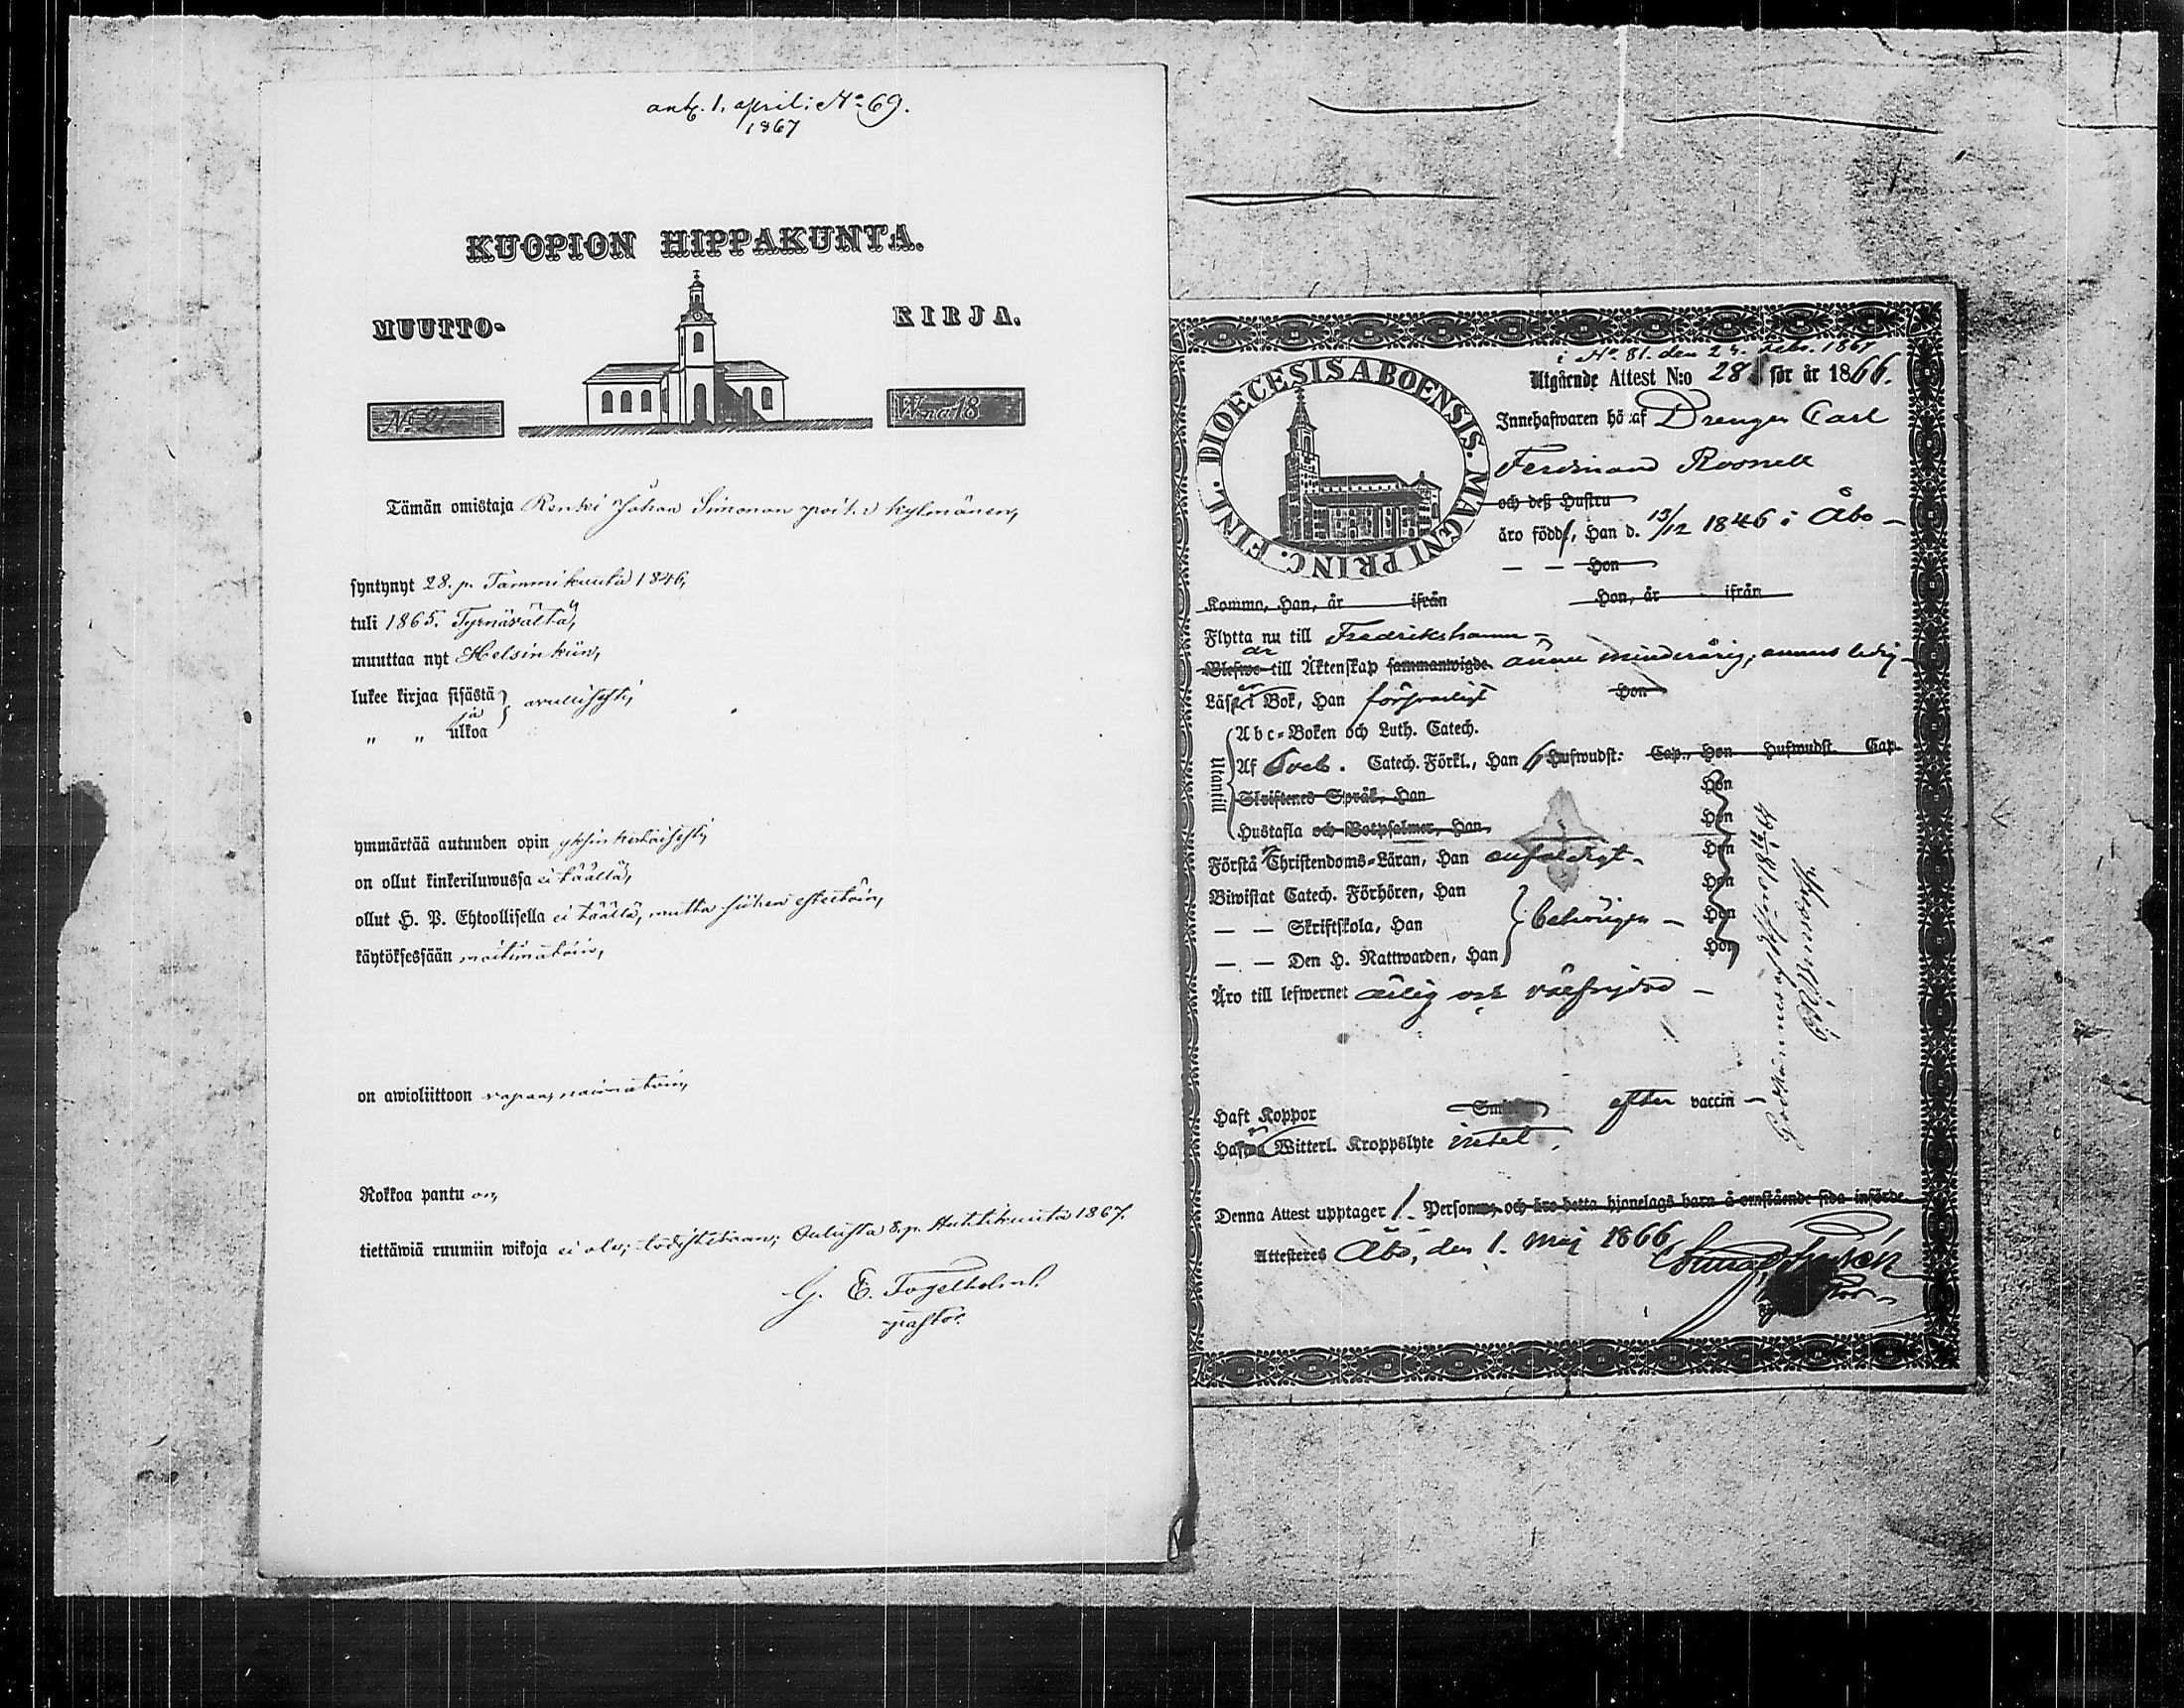 antg. 1. april: No. 69.
1867
KUOPION HIPPAKUNTA.
MUUTTO- KIRJA.
No. W-na 18
Tämän omistaja Renki Johan Simonan poika Kylmänen,
syntynyt 28. p. Tammikuuta 1846,
tuli 1865. Tyrnävältä,
muuttaa nyt Helsinkiin,
lukee kirjaa sisästä
ja
„ „ ulkoa } avullisesti,
ymmärtää autuuden opin yksinkertaisesti,
on ollut kinkeriluwussa ei täällä,
ollut H. P. Ehtoollisella ei täällä, mutta siihen esteetöin,
käytöksessään moitimatoin,
on awioliittoon vapaa, naimatoin,
Rokkoa pantu on,
tiettäwiä ruumiin wikoja ei ole; todistetaan; Oulusta 8. p. Huhtikuuta 1867.
G. E. Fogelholm.
pastor.
i No. 81. den 24. Febr. 1867
Utgående Attest N:o 28 för år 1866.
FINL. DIOECESIS ABOENSIS. MAGNI PRINC.
Innehafwaren häraf Drengen Carl
Ferdinand Rosnell
och deß Hustru
äro födde, Han d. 13/12 1846 i Åbo –
— — Hon
Komna, Han, år ifrån Hon, år ifrån
Flytta nu till Fredrikshamn –
är
Blefwe till Äktenskap sammanwigde ännu minderårig, annars ledig –
Läser i Bok, Han försvarligt Hon
Utantill
Abc-Boken och Luth. Catech.
Af Sveb. Catech. Förkl., Han 6 Hufwudst: Cap., Hon Hufwudst. Cap.
Skriftenes Språk, Han Hon
Hustafla och Botpsalmer, Han, Hon
Förstår Christendoms-Läran, Han enfaldigt – Hon
Biwistat Catech. Förhören, Han Hon
— — Skriftskola, Han } behörigen – Hon
— — Den H. Nattwarden, Han Hon
Äro till lefwernet ärlig och välfrejdad –
Haft Koppor Små efter vaccin –
Hafwa Witterl. Kroppslyte intet.
Denna Attest upptager 1. Personer, och äro detta hjonelags barn å omstående sida införde
Attesteres Åbo, den 1. Maj 1866